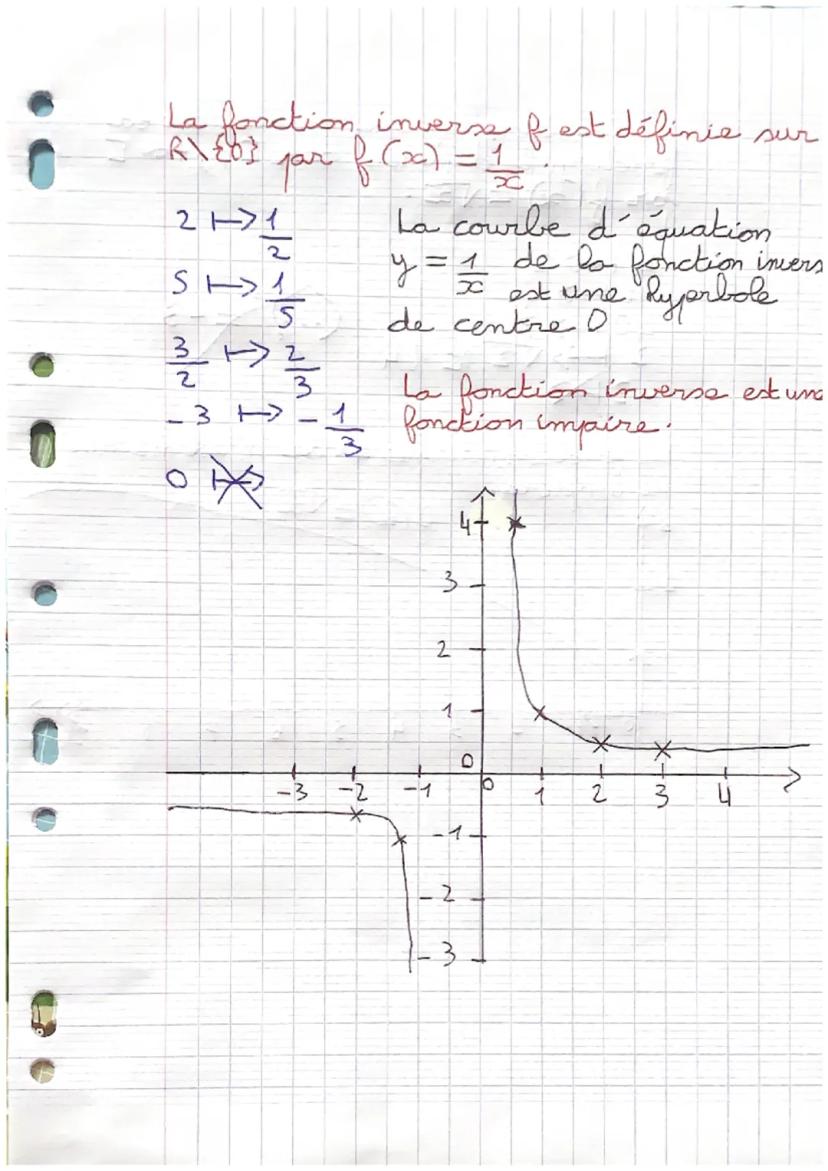 La fonction inverse f est définie sur
R\{0} par f(x) = 1/x.
2 ↦ 1/2
5 ↦ 1/5
3/2 ↦ 2/3
-3 ↦ -1/3
0 ↦
La courbe d'équation
y = 1/x de la fonction invers
est une hyperbole
de centre O
La fonction inverse est une
fonction impaire.
4
3
2
1
0
-3 -2 -1 0 1 2 3 4
-1
-2
-3